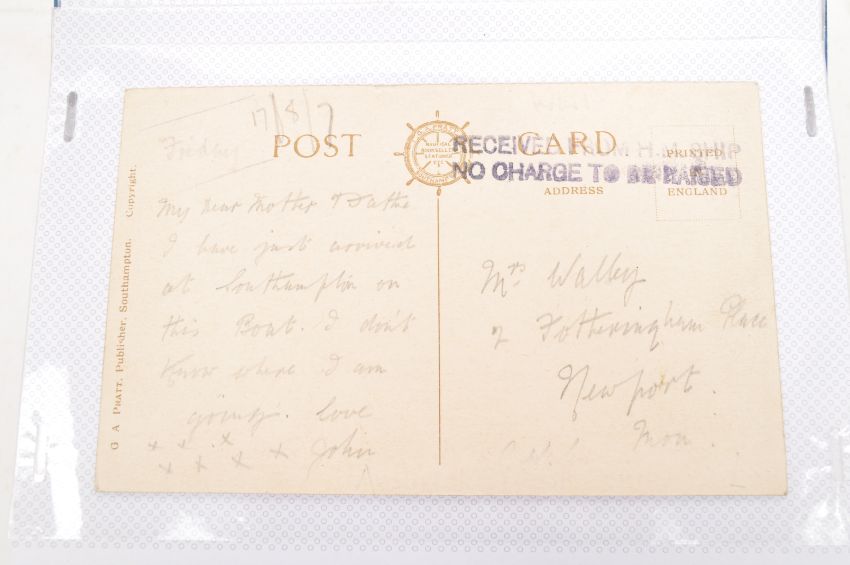 17/8/7
Friday
POST CARD
G. A. PRATT
NAUTICAL
BOOKSELLER
STATIONER
ETC.
SOUTHAMPTON
RECEIVED FROM H.M. SHIP
NO CHARGE TO BE RAISED
PRINTED
ENGLAND
ADDRESS
G A PRATT, Publisher, Southampton. Copyright.
My Dear Mother &
I have just arrived
at Southampton on
this Boat. I don't
know where I am
going. love
x x x
x x x x John
Mrs Walley
2 Fotheringham Place
Newport.
Mon.